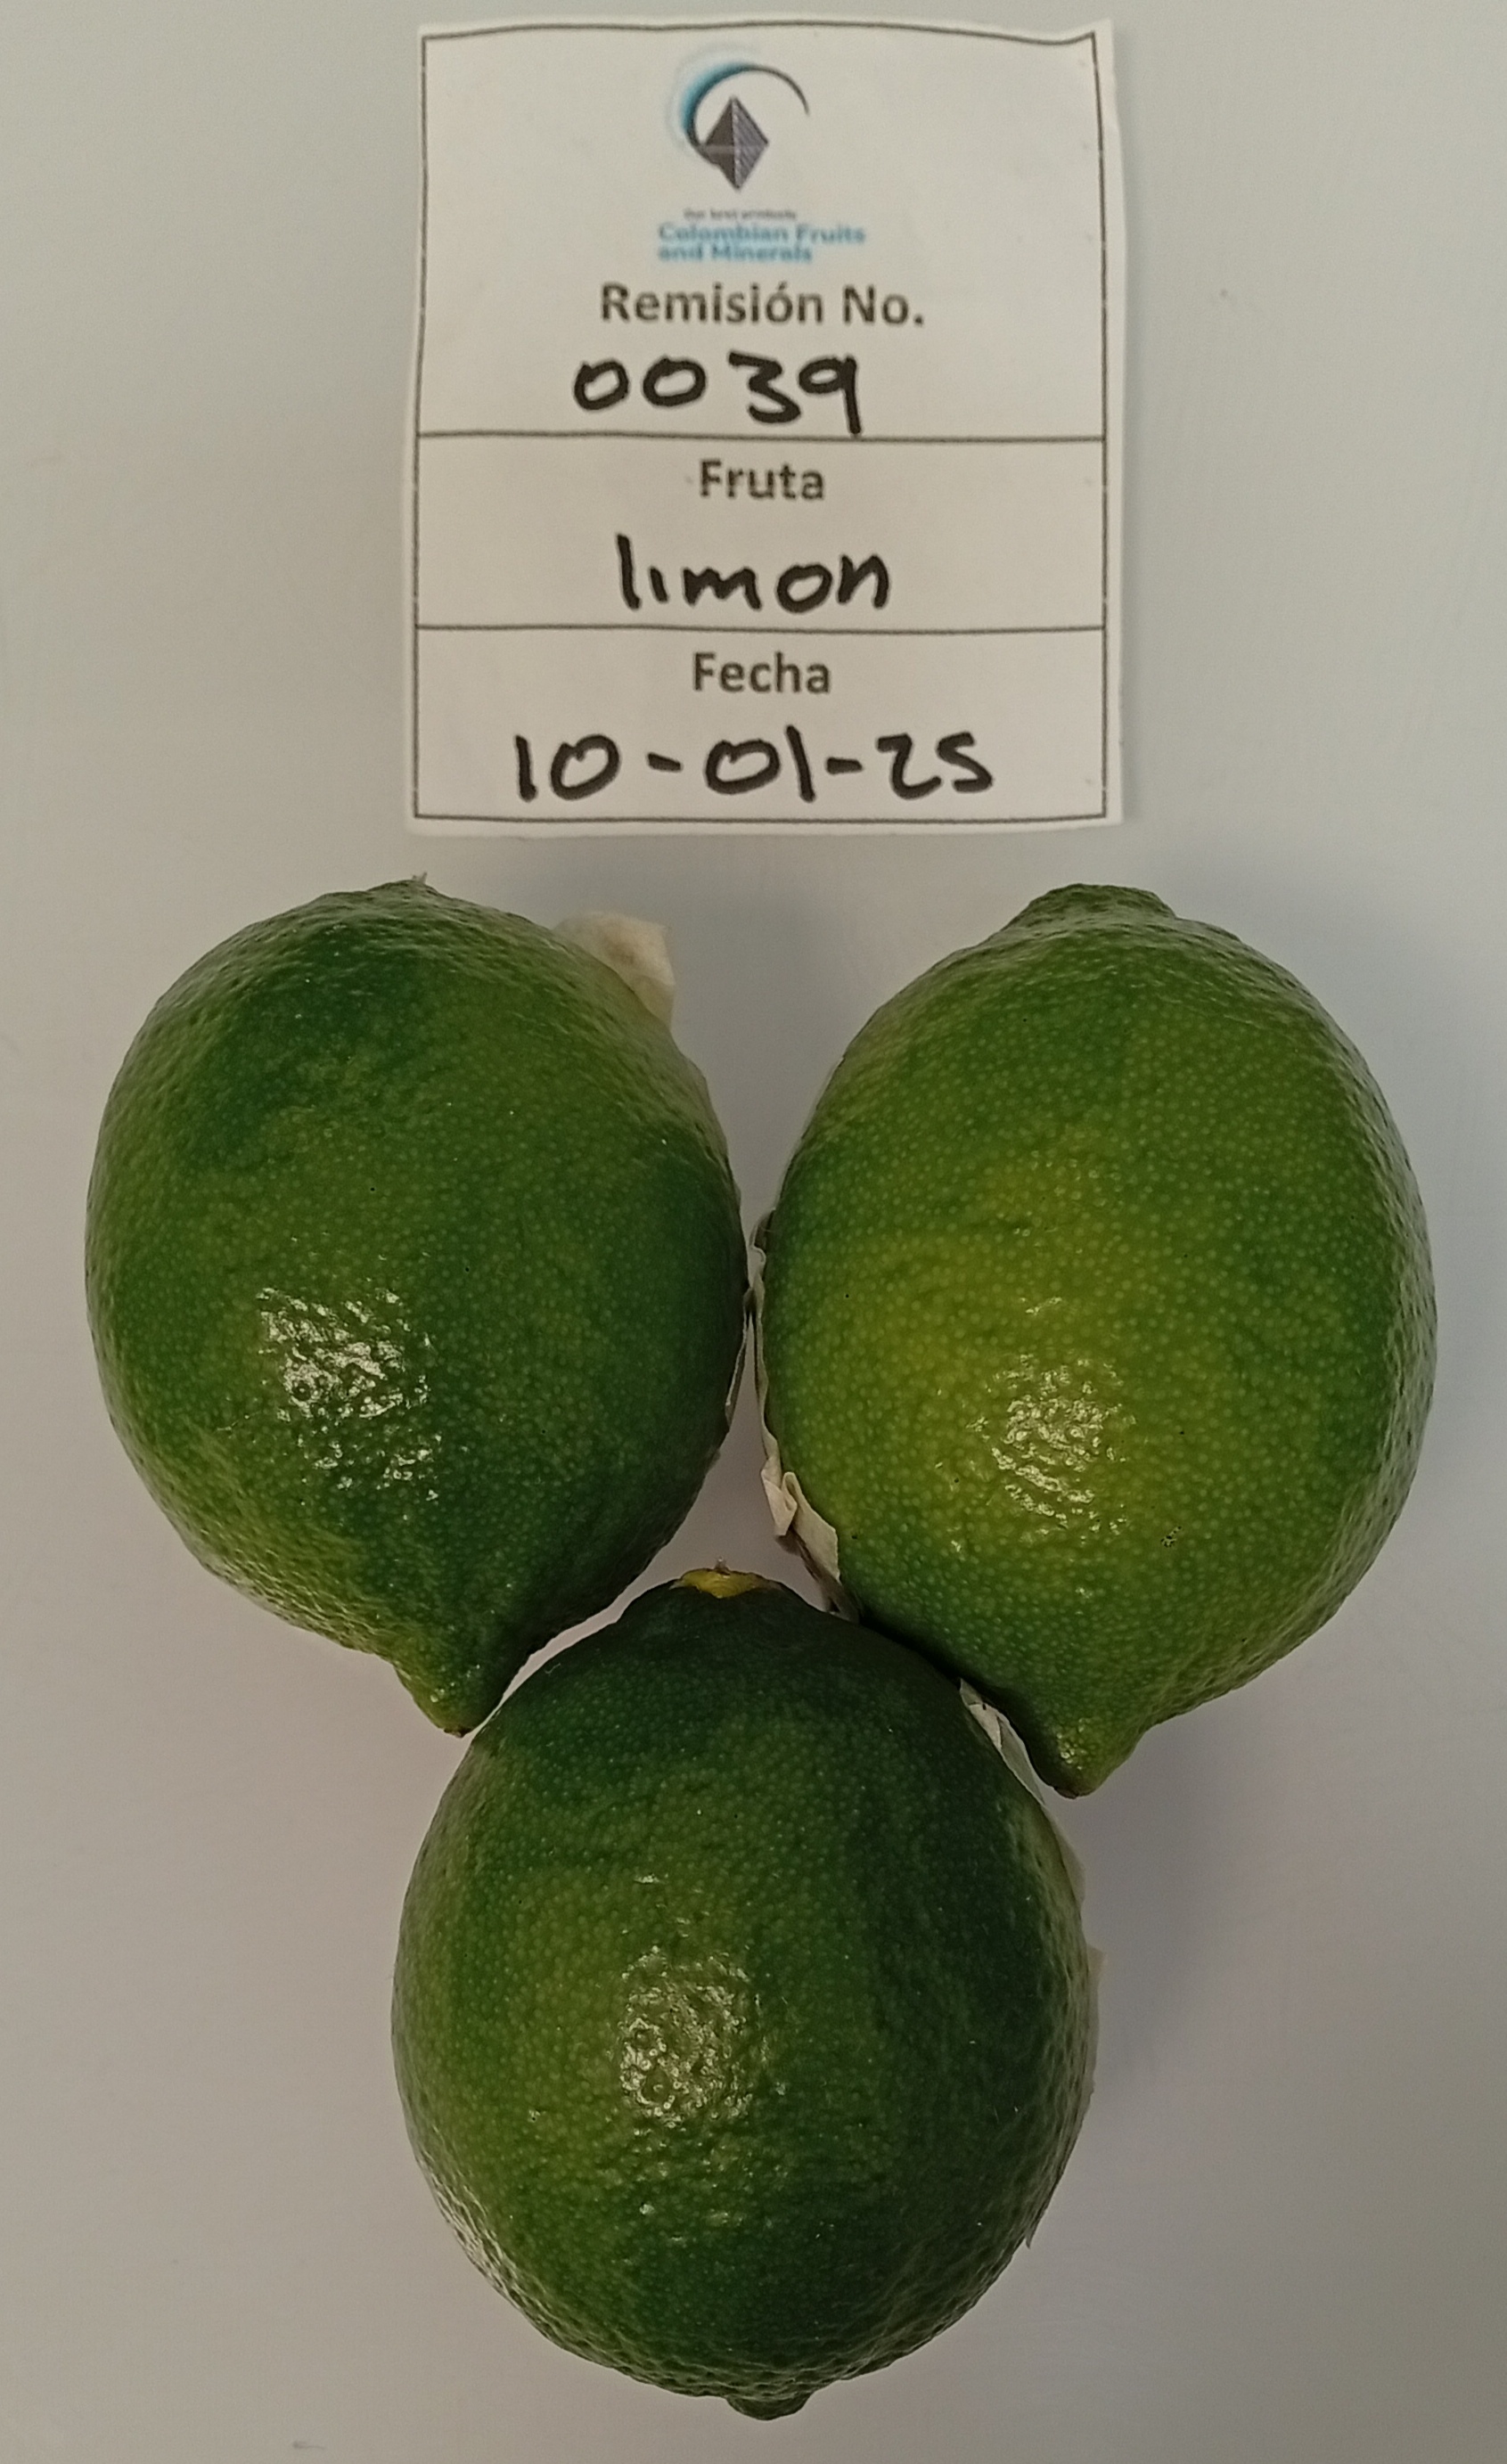 Our best products
Colombian Fruits
and Minerals
Remisión No.
0039
Fruta
limon
Fecha
10-01-25